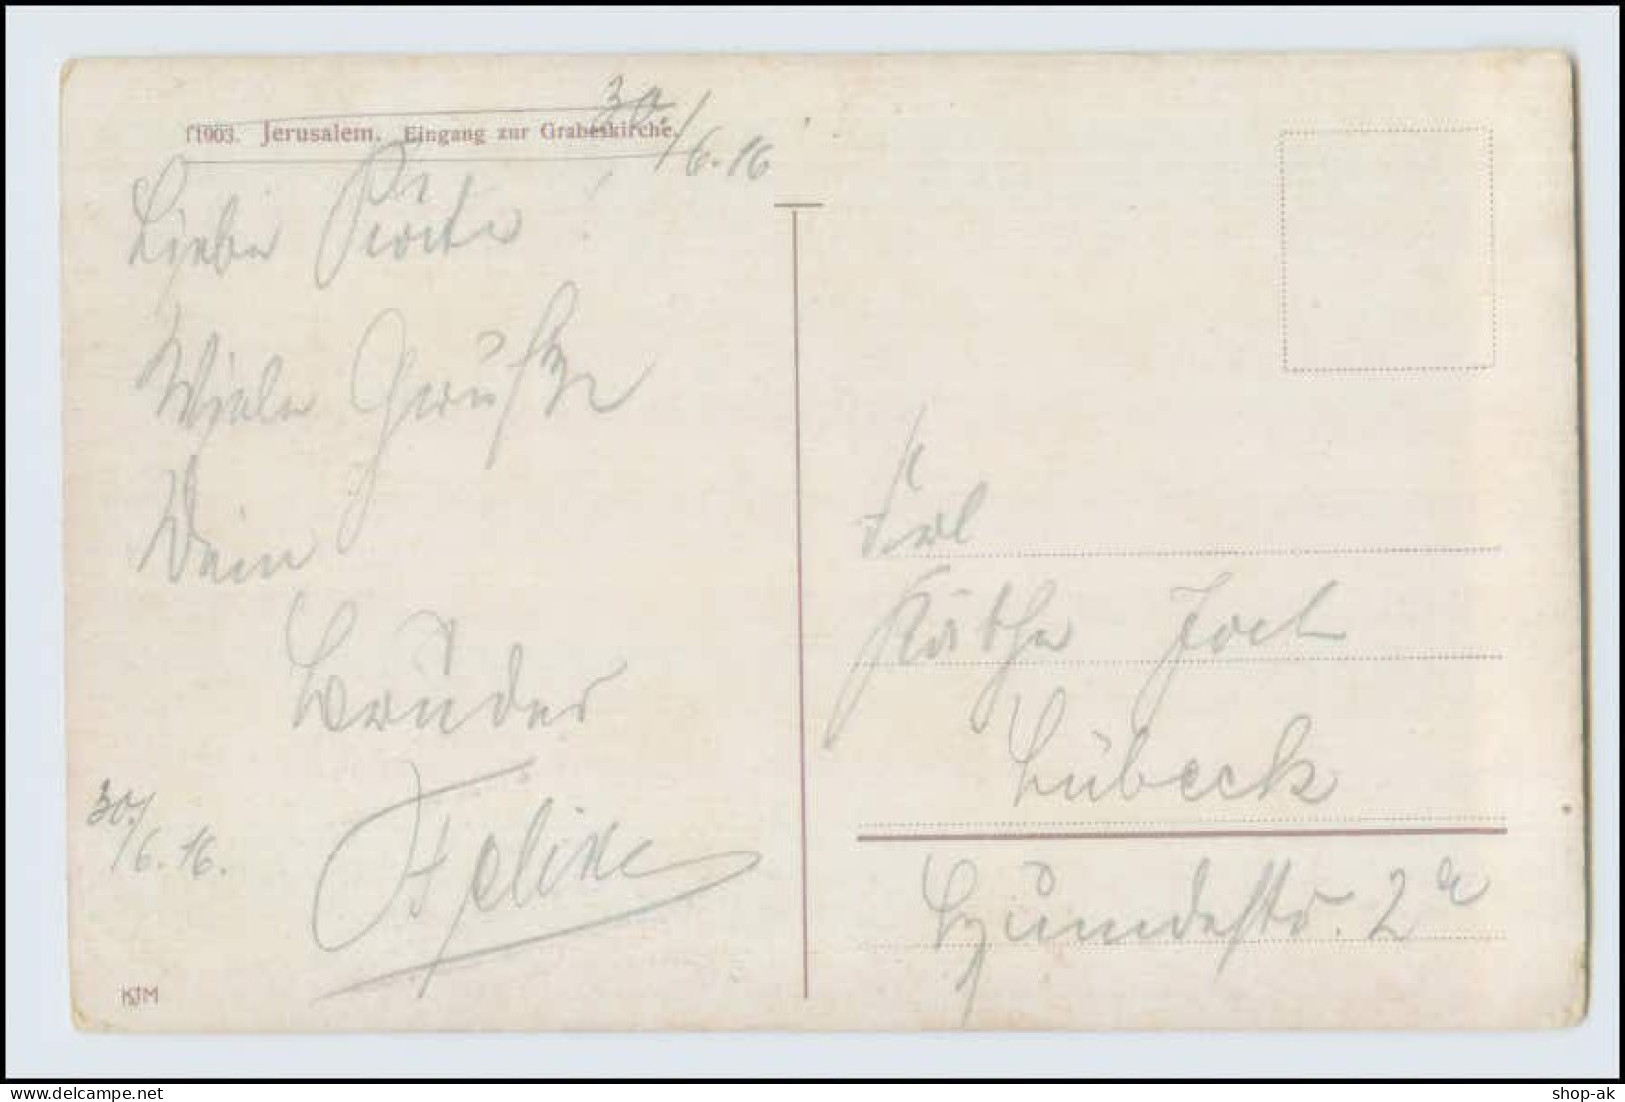 11903. Jerusalem. Eingang zur Grabeskirche.
30./6.16
Liebe !
Viele Grüße
Dein
Brüder
Felix
30./6.16.
KJM
Frl
Käthe Joel
Lübeck
Hundestr. 2a
shop-ak